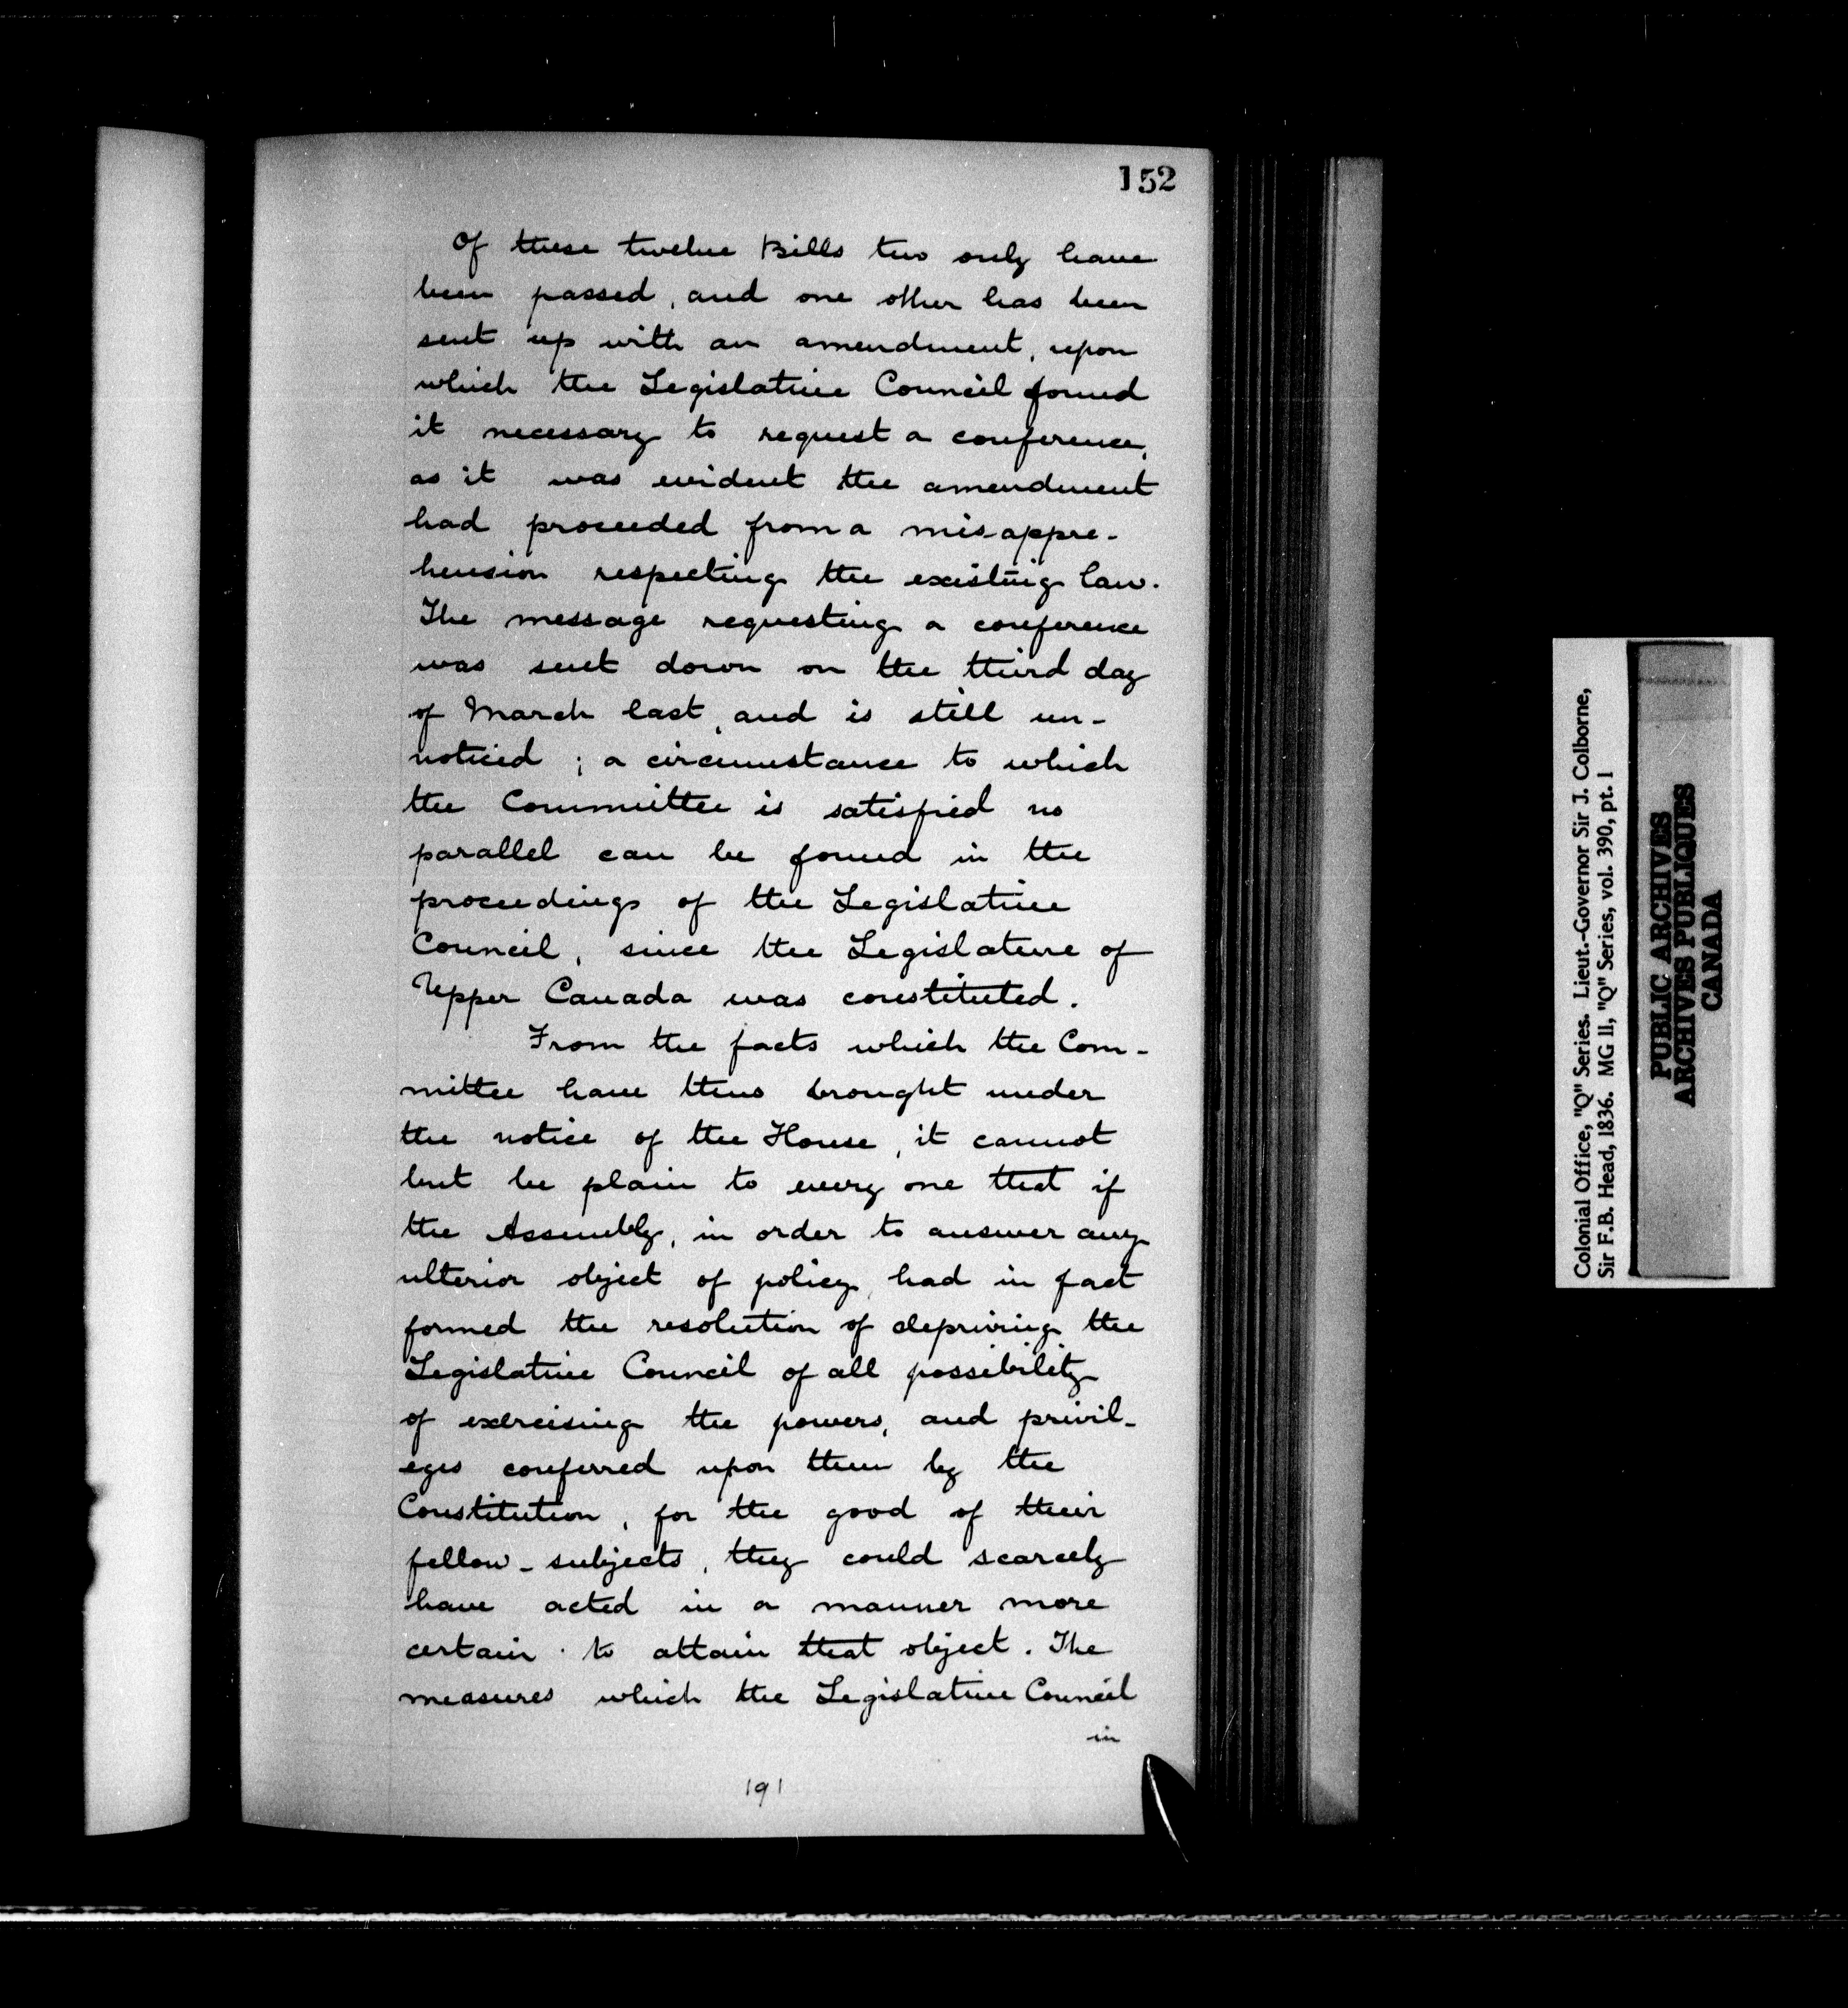 152
Of these twelve Bills two only have
been passed, and one other has been
sent up with an amendment, upon
which the Legislative Council found
it necessary to request a conference,
as it was evident the amendment
had proceeded from a misappre-
hension respecting the existing law.
The message requesting a conference
was sent down on the third day
of March last, and is still un-
noticed ; a circumstance to which
the Committee is satisfied no
parallel can be found in the
proceedings of the Legislative
Council, since the Legislature of
Upper Canada was constituted.
From the facts which the Com-
mittee have thus brought under
the notice of the House, it cannot
but be plain to every one that if
the Assembly, in order to answer any
ulterior object of policy, had in fact
formed the resolution of depriving the
Legislative Council of all possibility
of exercising the powers, and privil-
eges conferred upon them by the
Constitution, for the good of their
fellow-subjects, they could scarcely
have acted in a manner more
certain to attain that object. The
measures which the Legislative Council
in
191
Colonial Office, "Q" Series. Lieut.-Governor Sir J. Colborne,
Sir F.B. Head, 1836. MG 11, "Q" Series, vol. 390, pt. 1
PUBLIC ARCHIVES
ARCHIVES PUBLIQUES
CANADA